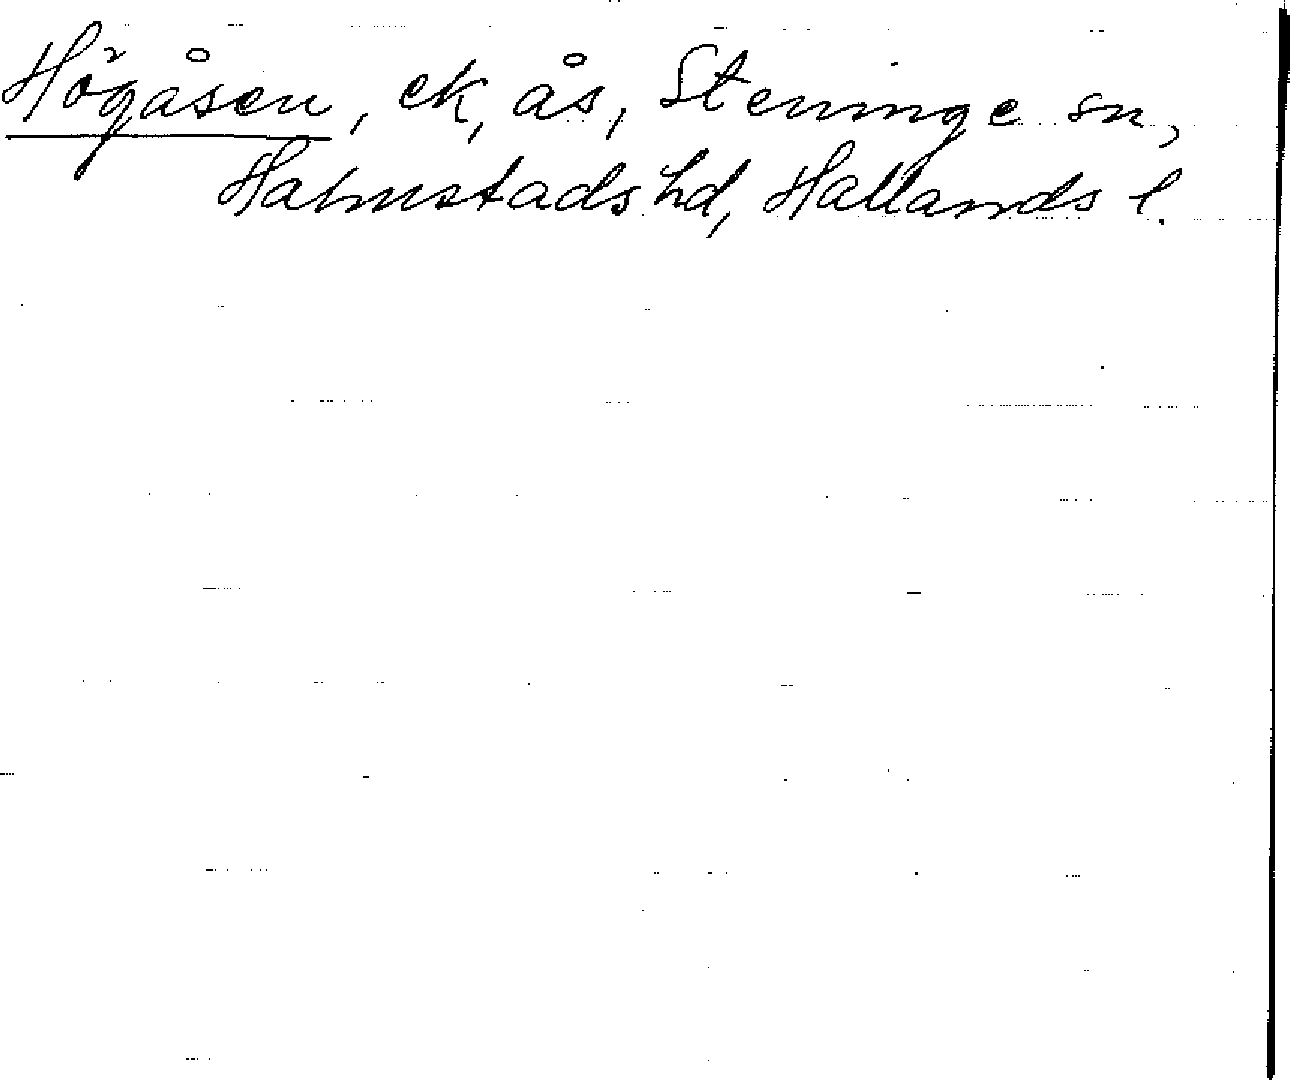 Högåsen, ek, ås, Steninge sn,
Halmstads hd, Hallands l.